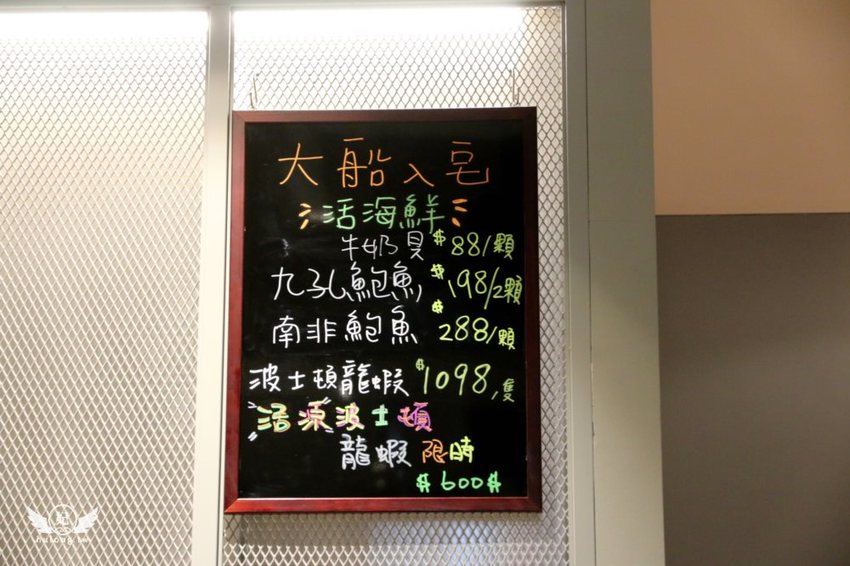 大船入宅
活海鮮
牛奶貝 $88/顆
九孔鮑魚 $198/2顆
南非鮑魚 $288/顆
波士頓龍蝦 $1098,隻
活凍波士頓
龍蝦 限時
$600$
紀
hutong.tw